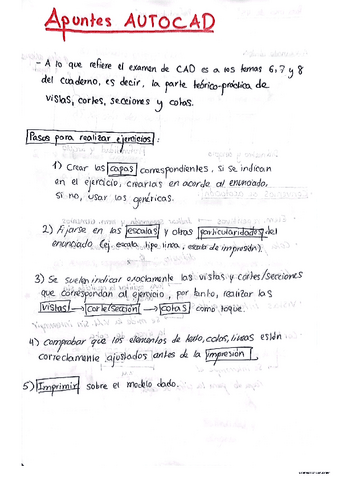 Apuntes AUTOCAD
- A lo que refiere el examen de CAD es a los temas 6, 7 y 8
del cuaderno, es decir, la parte teórico-práctica de
vistas, cortes, secciones y cotas.
Pasos para realizar ejercicios:
1) Crear las capas correspondientes, si se indican
en el ejercicio, crearlas en acorde al enunciado,
si no, usar los genéricas.
2) Fijarse en las escalas y otras particularidades del
enunciado (ej. escala tipo linea, escala de impresión).
3) Se suelen indicar exactamente las vistas y cortes/secciones
que correspondan al ejercicio, por tanto, realizar las
vistas → corte/sección → cotas como toque.
4) Comprobar que los elementos de texto, cotas, lineas estén
correctamente ajustados antes de la impresión.
5) Imprimir sobre el modelo dado.